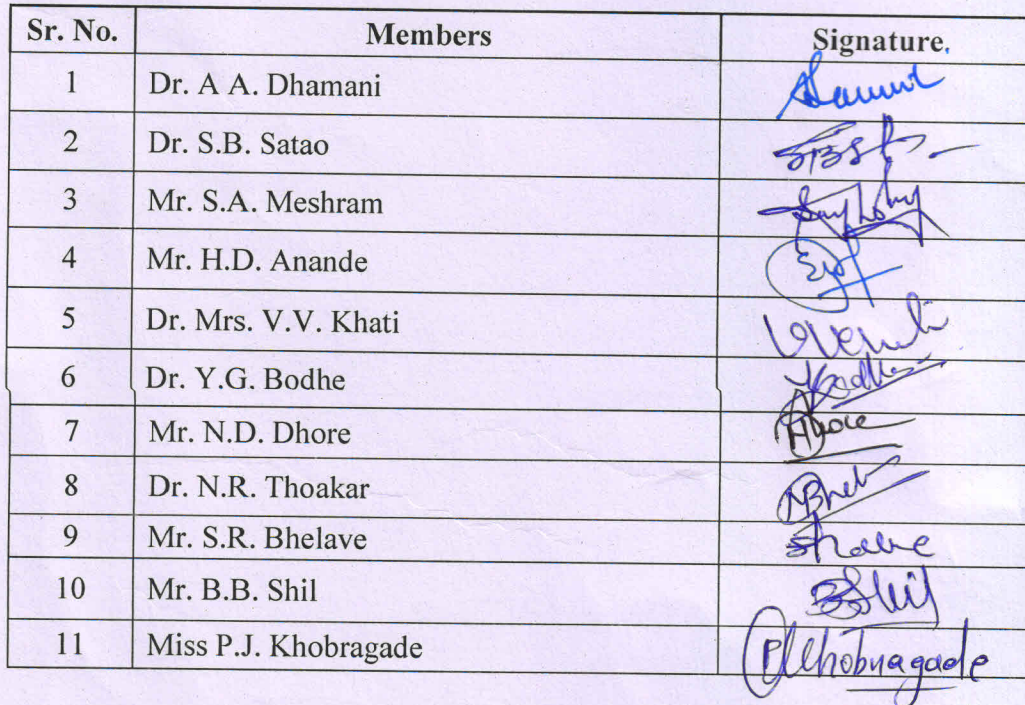 Sr. No. Members Signature
1 Dr. A A. Dhamani
2 Dr. S.B. Satao
3 Mr. S.A. Meshram
4 Mr. H.D. Anande
5 Dr. Mrs. V.V. Khati
6 Dr. Y.G. Bodhe
7 Mr. N.D. Dhore
8 Dr. N.R. Thoakar
9 Mr. S.R. Bhelave
10 Mr. B.B. Shil BBShil
11 Miss P.J. Khobragade PKhobragade